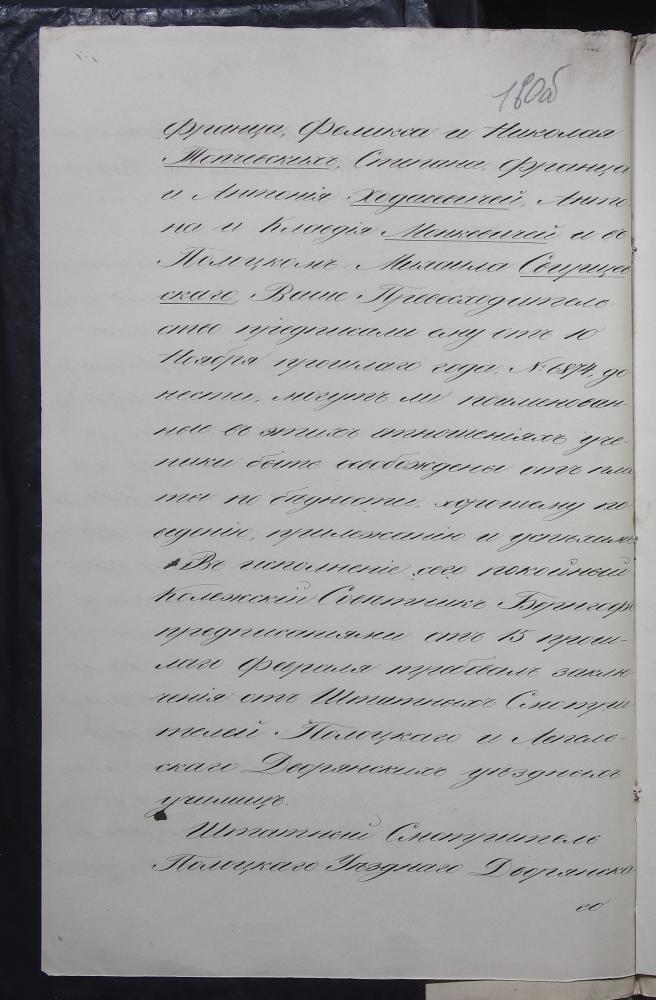 180об
Франца, Феликса и Николая
Топчевскихъ, Степана, Франца
и Антонія Ходасевичей, Анто
на и Клавдія Монкевичей и въ
Полоцкомъ: Михаила
скаго, Ваше Превосходитель-
ство предписали ему отъ 10
Ноября прошлаго года, № 6874, до
нести, могутъ ли поименован-
ные въ этихъ отношеніяхъ уче-
ники быть освобождены отъ пла
ты по бѣдности, хорошему по
веденію, прилежанію и успѣхамъ.
Въ исполненіе сего покойный
Колежскій Совѣтникъ
предписаніями отъ 15 прош-
лаго Февраля требовалъ заклю
ченія отъ Штатныхъ Смотри
телей Полоцкаго и Лепель-
скаго Дворянскихъ уѣздныхъ
училищъ.
Штатный Смотритель
Полоцкаго Уѣзднаго Дворянска
го